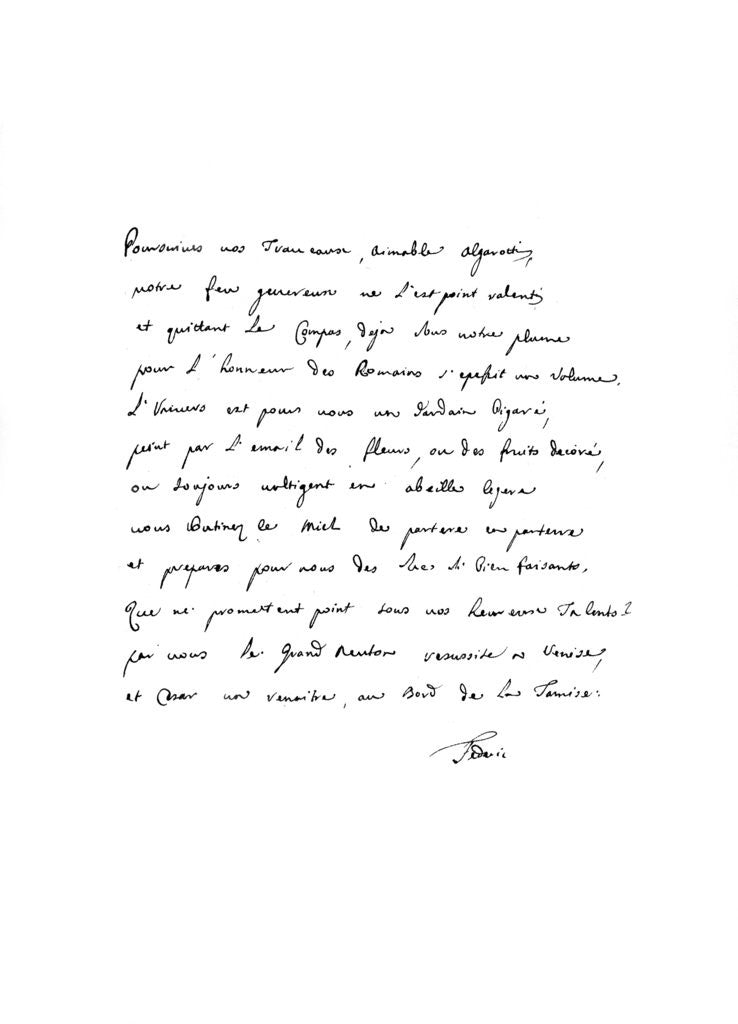 Poursuives vos Travcause, aimable Algarotti,
votre feu genereuse ne L'est point ralenti
et quittant Le Compas, deja sous votre plume
pour L'honneur des Romains s'epessit un volume.
L'Univers est pour vous un Jardain Bigaré,
peint par L'email des fleurs, ou des fruits decoré,
ou toujours voltigent en abeille legere
vous Butinez le miel de partere en parterre
et prepares pour nous des sucs si Bien faisants,
Que ne promettent point tous vos heureuse Talents?
par vous le Grand Neuton resussite a Venise,
et Cesar va renaitre, au Bord de La Tamise.
Federic